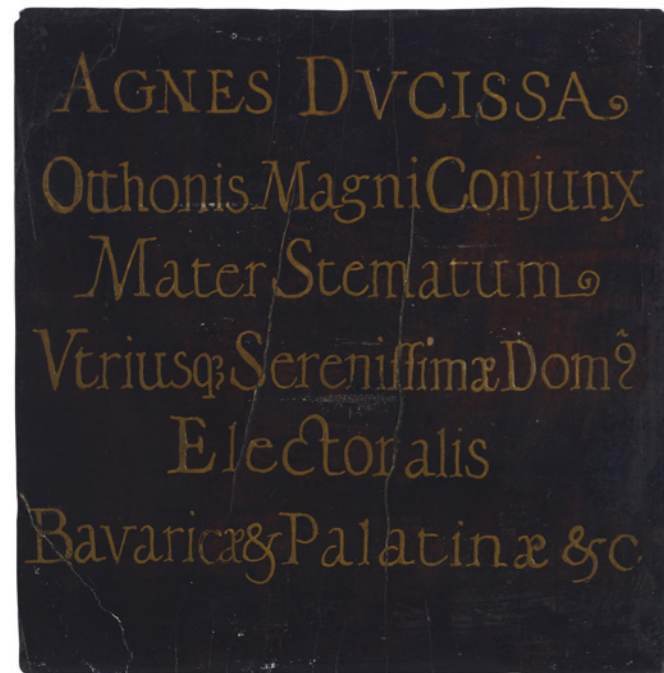 AGNES DVCISSA
Otthonis Magni Conjunx
Mater Stematum
Vtriusqꝫ Sereniſſimæ Domꝰ
Electoralis
Bavaricæ & Palatinæ &c